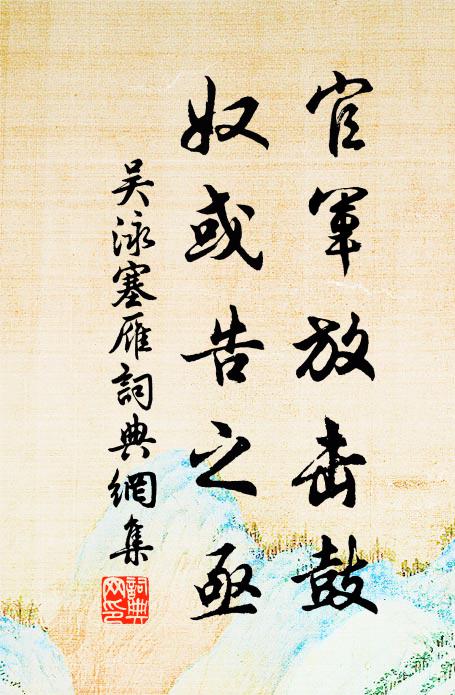 官军放击鼓
奴或告之亟
吴泳塞雁詞典網集
詞典